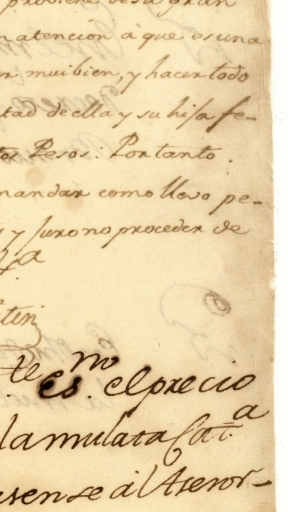 proviene de su gran
n atencion á que es una
muibien, y hacer todo
tad de ella y su hija fe-
tos Pesos: Portanto.
mandar como llevo pe-
s y juro no proceder de
el precio
la mulata Cat.a
asense al Asesor-